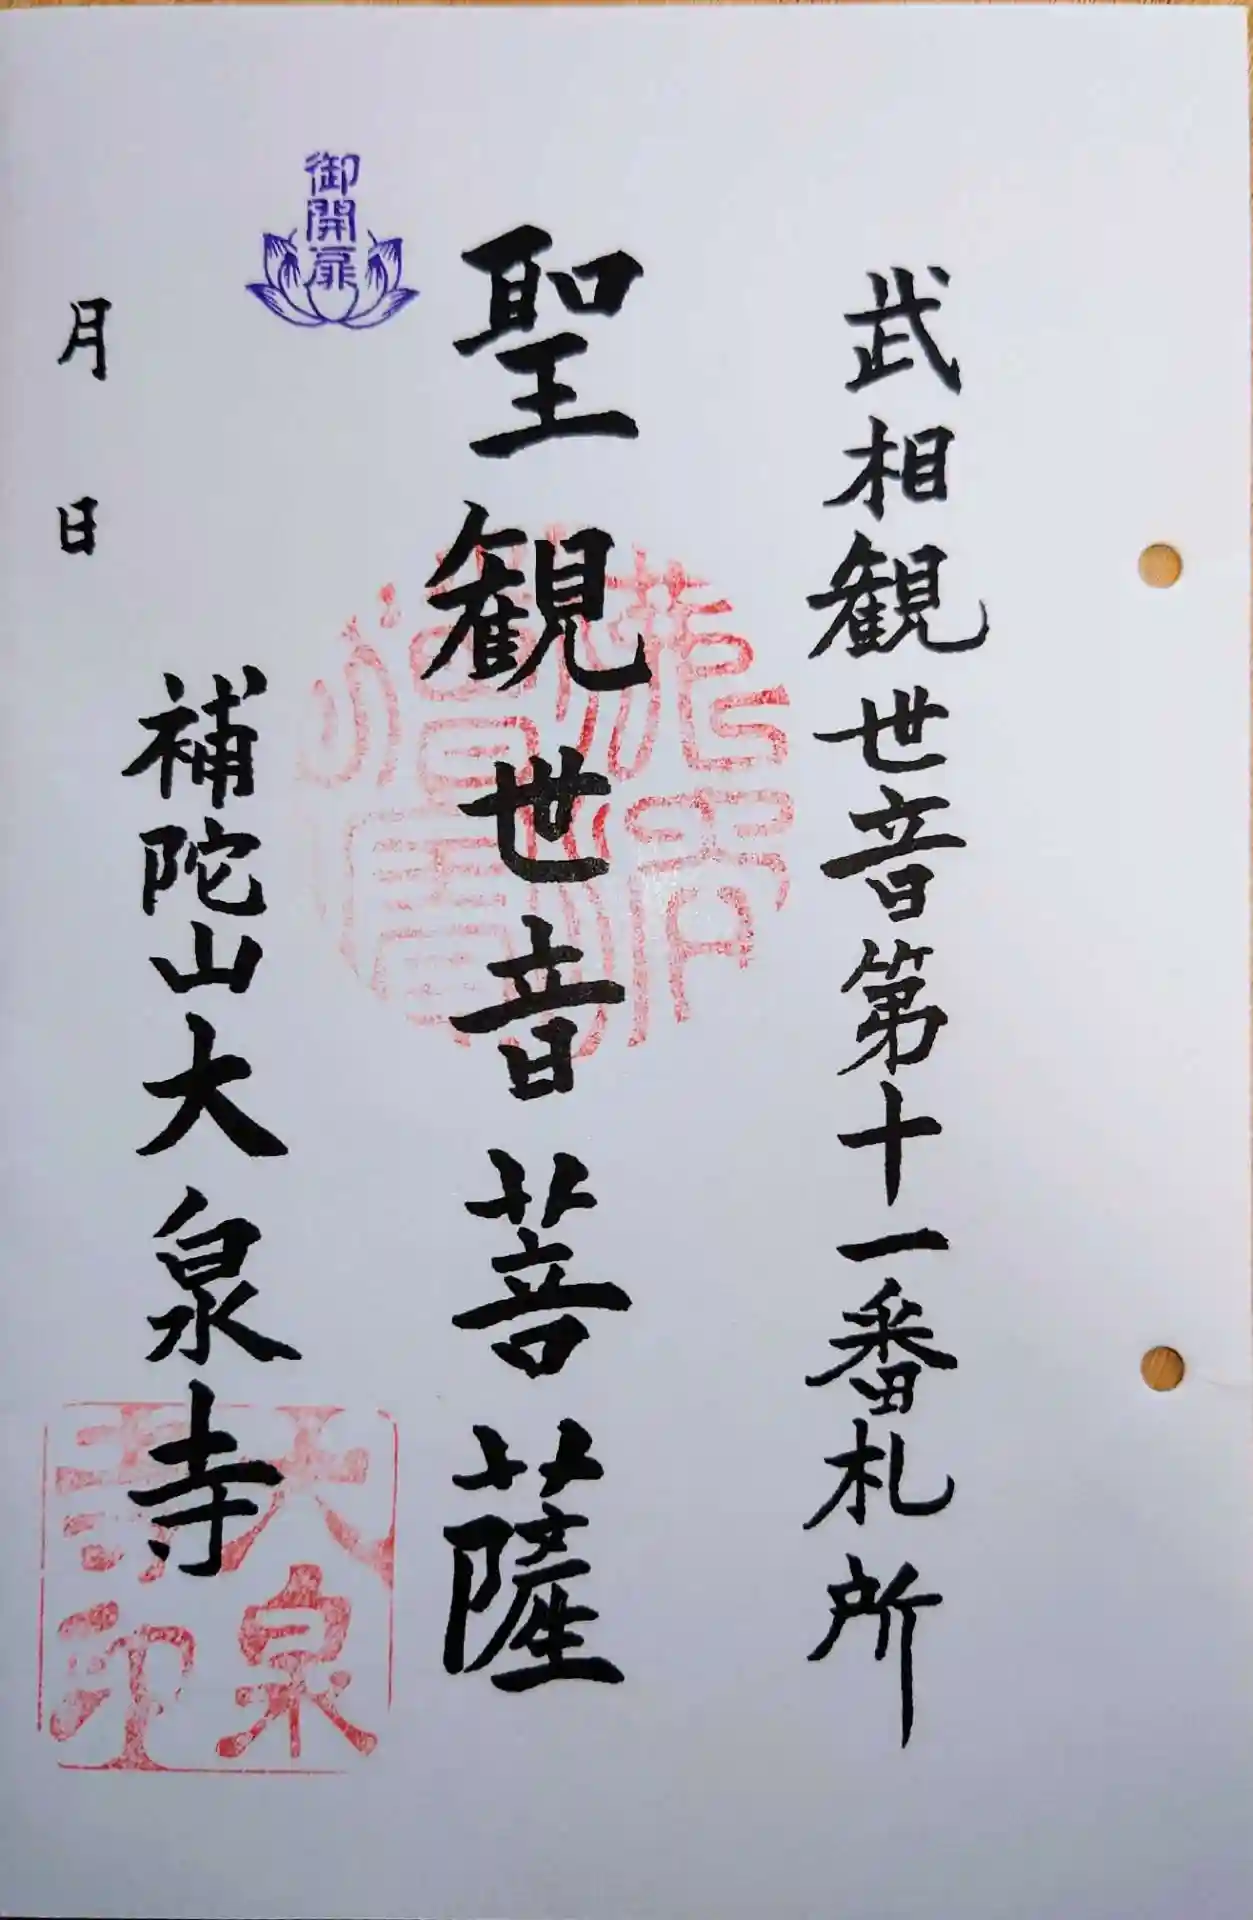 武相観世音第十一番札所
聖観世音菩薩
御開扉
補陀山大泉寺
月日
大泉寺印